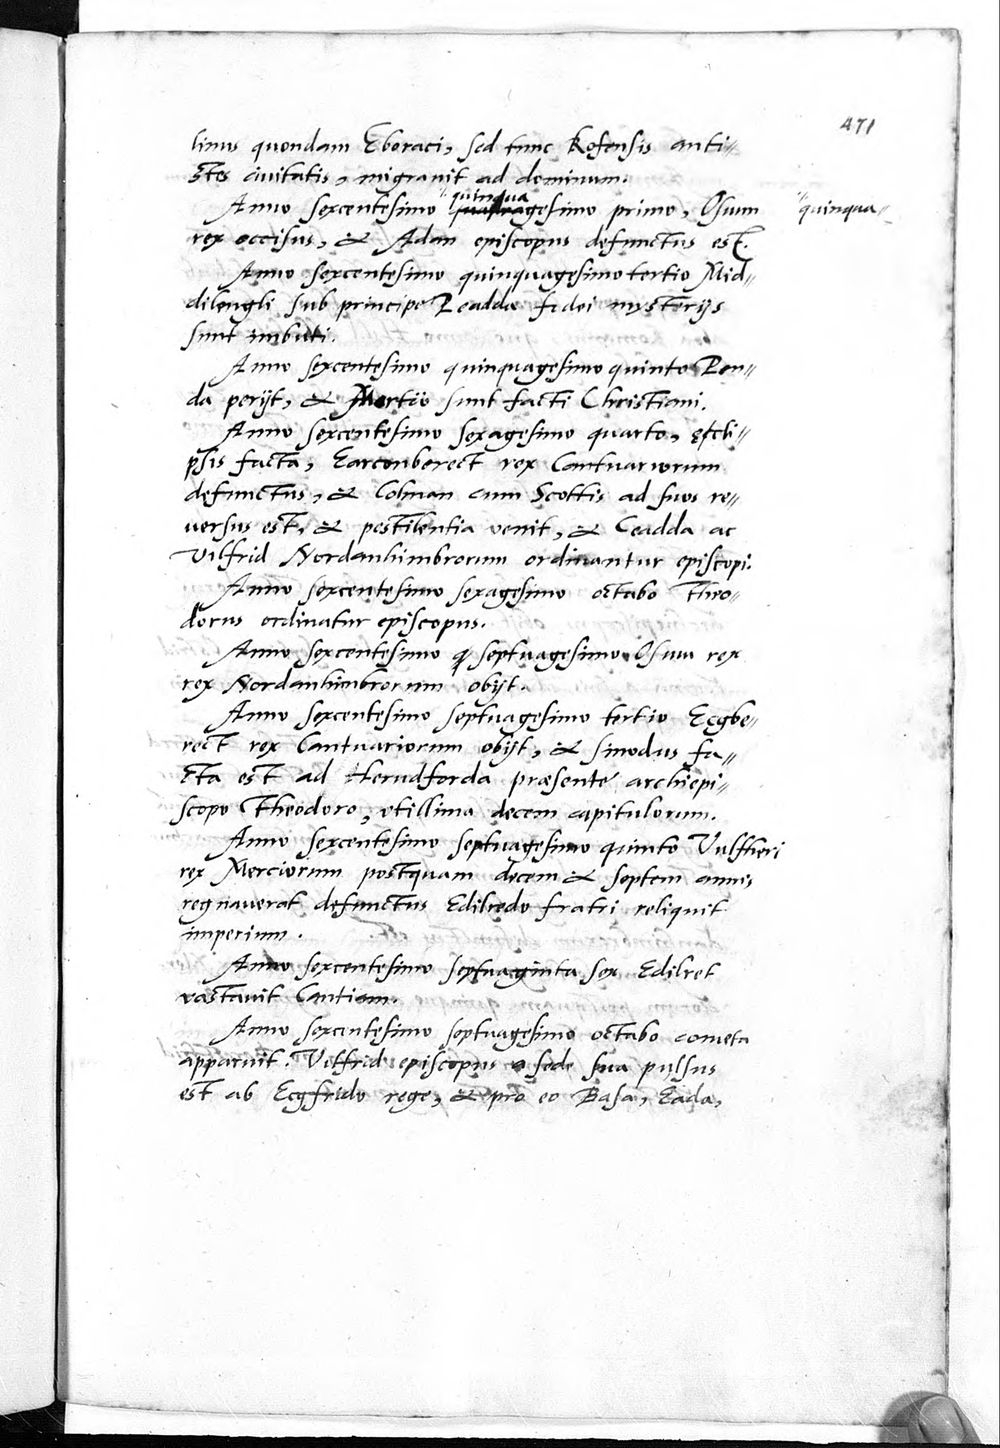 471
linus quondam Eboraci, sed tunc Rofensis anti=
stes civitatis, migravit ad dominum.
Anno sexcentesimo quinqua quadragesimo primo, Osuin quinqua=
rex occisus, & Adan episcopus defunctus est.
Anno sexcentesimo quinquagesimo tertio Mid=
dilengli sub principe Peadda fedei mysterijs
sunt imbuti.
Anno sexcentesimo quinquagesimo quinto Pen=
da perijt, & Mertii sunt facti Christiani.
Anno sexcentesimo sexagesimo quarto, ecli=
psis facta, Earconberect rex Cantuariorum
defunctus, & Colman cum Scottis ad suos re=
versus est, & pestilentia venit, & Ceadda ac
Vilfrid Nordanhimbrorum ordinantur episcopi.
Anno sexcentesimo sexagesimo octabo Theo=
dorus ordinatur episcopus.
Anno sexcentesimo septuagesimo Osuiu rex
rex Nordanhimbrorum obijt.
Anno sexcentesimo septuagesimo tertio Ecgbe=
rect rex Cantuariorum obijt, & sinodus fa=
cta est ad Herudforda præsente archiepi=
scopo Theodoro, utillima decem capitulorum.
Anno sexcentesimo septuagesimo quinto Vulfheri
rex Merciorum postquam decem & septem annis
regnaverat defunctus Edilredo fratri reliquit
imperium.
Anno sexcentesimo septuaginta sex Edilret
vastavit Cantiam.
Anno sexcentesimo septuagesimo octabo cometa
apparuit. Vilfrid episcopus a sede sua pulsus
est ab Ecgfrido rege, & pro eo Basa, Eada,